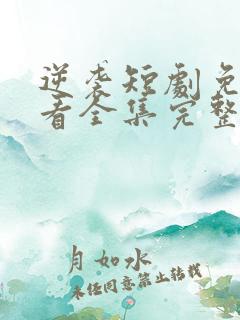 逆袭短劇免
看全集完整
月如水
未经同意禁止转载